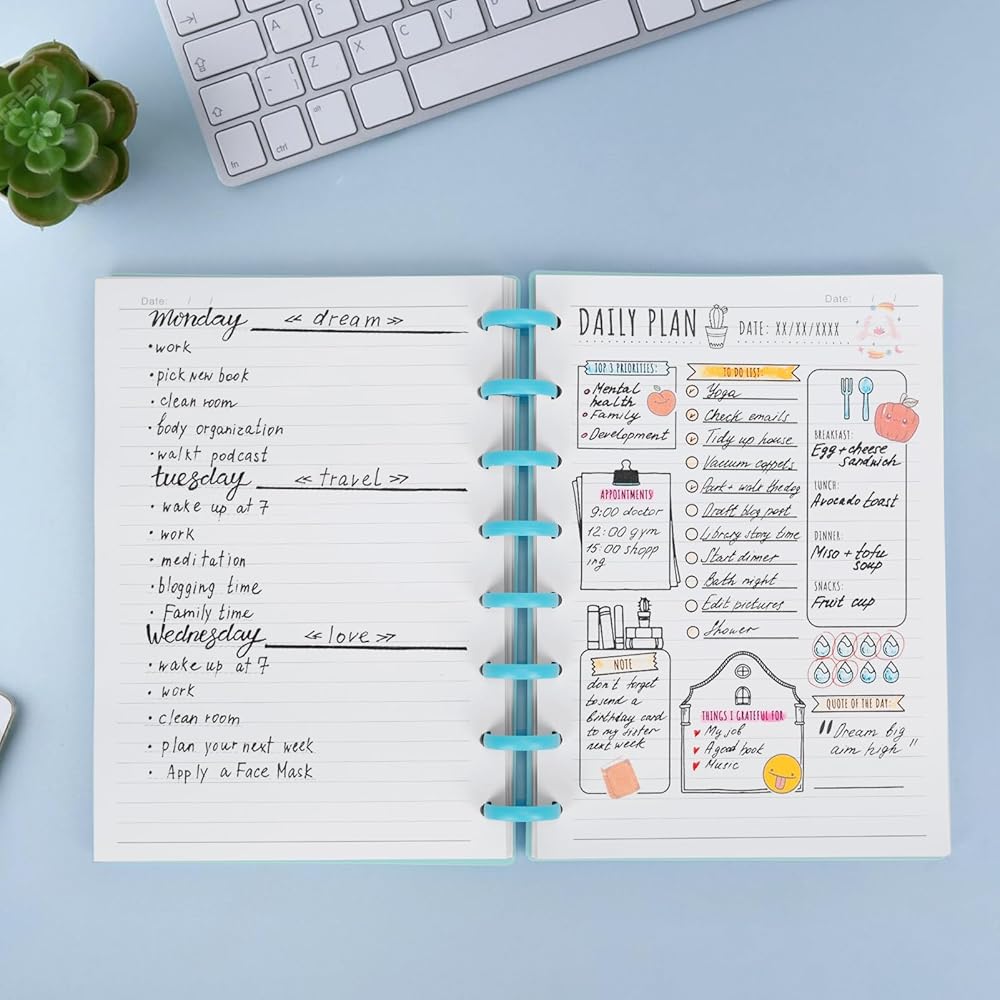 A
S
Z
X
C
V
B
fn
ctrl
alt
Date: / /
Monday << dream >>
• work
• pick new book
• clean room
• body organization
• walkt podcast
tuesday << travel >>
• wake up at 7
• work
• meditation
• blogging time
• Family time
Wednesday << love >>
• wake up at 7
• work
• clean room
• plan your next week
• Apply a Face Mask
Date: / /
DAILY PLAN
DATE: XX/XX/XXXX
TOP 3 PRIORITIES:
Mental
health
Family
Development
APPOINTMENTS
9:00 doctor
12:00 gym
15:00 shopp
ing
NOTE
don't forget
to send a
Birthday card
to my sister
next week
TO DO LIST:
Yoga
Check emails
Tidy up house
Vacuum
Park + walk the dog
Draft blog post
Library story time
Start dinner
Bath night
Edit pictures
Shower
THINGS I GRATEFUL FOR
My job
A good book
Music
BREAKFAST:
Egg + cheese
sandwich
LUNCH:
Avocado toast
DINNER:
Miso + tofu
soup
SNACKS:
Fruit cup
QUOTE OF THE DAY:
"Dream big
aim high"